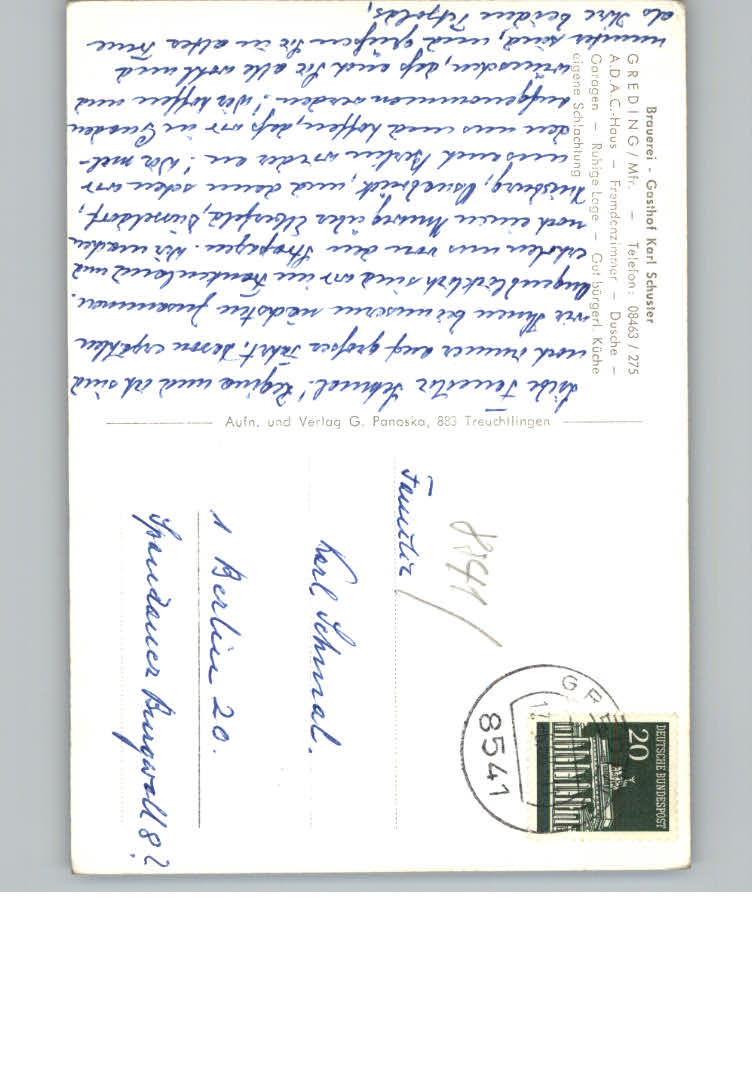 Brauerei - Gasthof Karl Schuster
GREDING / Mfr. — Telefon: 08463 / 275
A.D.A.C.-Haus — Fremdenzimmer — Dusche —
Garagen — Ruhige Lage — Gut bürgerl. Küche
eigene Schlachtung
Liebe Familie Schmal! Regina und ich sind
noch immer auf großer Fahrt. Davon erzählen
wir Ihnen bei unserem nächsten Zusammen.
Augenblicklich sind wir im Frankenland und
erholen uns von den Strapazen. Wir machen
noch einen Umweg über Elberfeld, Düsseldorf,
Duisburg, Osnabrück, und dann sehen wir
uns auch Berlin wieder an! Wir mel-
den uns und hoffen, daß wir in Gnaden
aufgenommen werden! Wir hoffen und
wünschen, daß auch Sie alle wohl und
munter sind, und grüßen Sie in alter Treue
als Ihre beiden
Aufn. und Verlag G. Panoska, 883 Treuchtlingen
8541
GREDING
8541
DEUTSCHE BUNDESPOST
20
Familie
Karl Schmal.
1 Berlin 20.
Spandauer Burgwall 8?